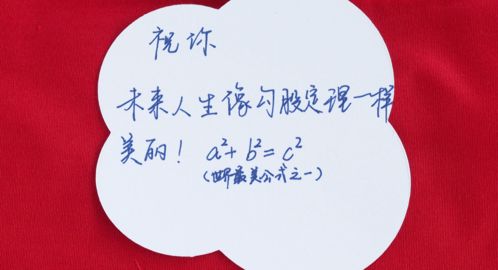 祝你
未来人生像勾股定理一样
美丽！ a²+b²=c²
(世界最美公式之一)